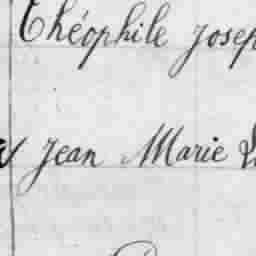 Théophile Josep
Jean Marie